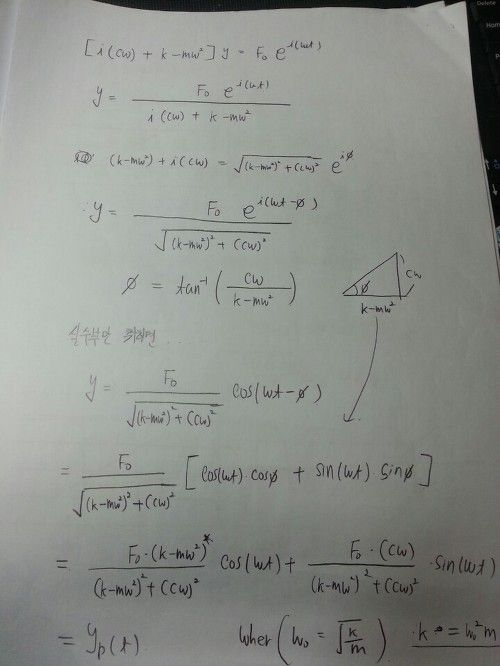 [i(cω) + k-mω²] y = F₀ e^{i(ωt)}
y = F₀ e^{i(ωt)} / (i(cω) + k-mω²)
(k-mω²) + i(cω) = √((k-mω²)² + (cω)²) e^{iø}
∴y = F₀ e^{i(ωt-ø)} / √((k-mω²)² + (cω)²)
ø = tan⁻¹(cω / (k-mω²))
ø cω
k-mω²
실수부만 취하면..
y = F₀ / √((k-mω²)² + (cω)²) cos(ωt-ø)
= F₀ / √((k-mω²)² + (cω)²) [cos(ωt)·cosø + sin(ωt)·sinø]
= F₀·(k-mω²) / ((k-mω²)² + (cω)²) cos(ωt) + F₀·(cω) / ((k-mω²)² + (cω)²) ·sin(ωt)
= y_p(t) wher (ω₀ = √(k/m)) ·k = ω₀²m
Delete
Home